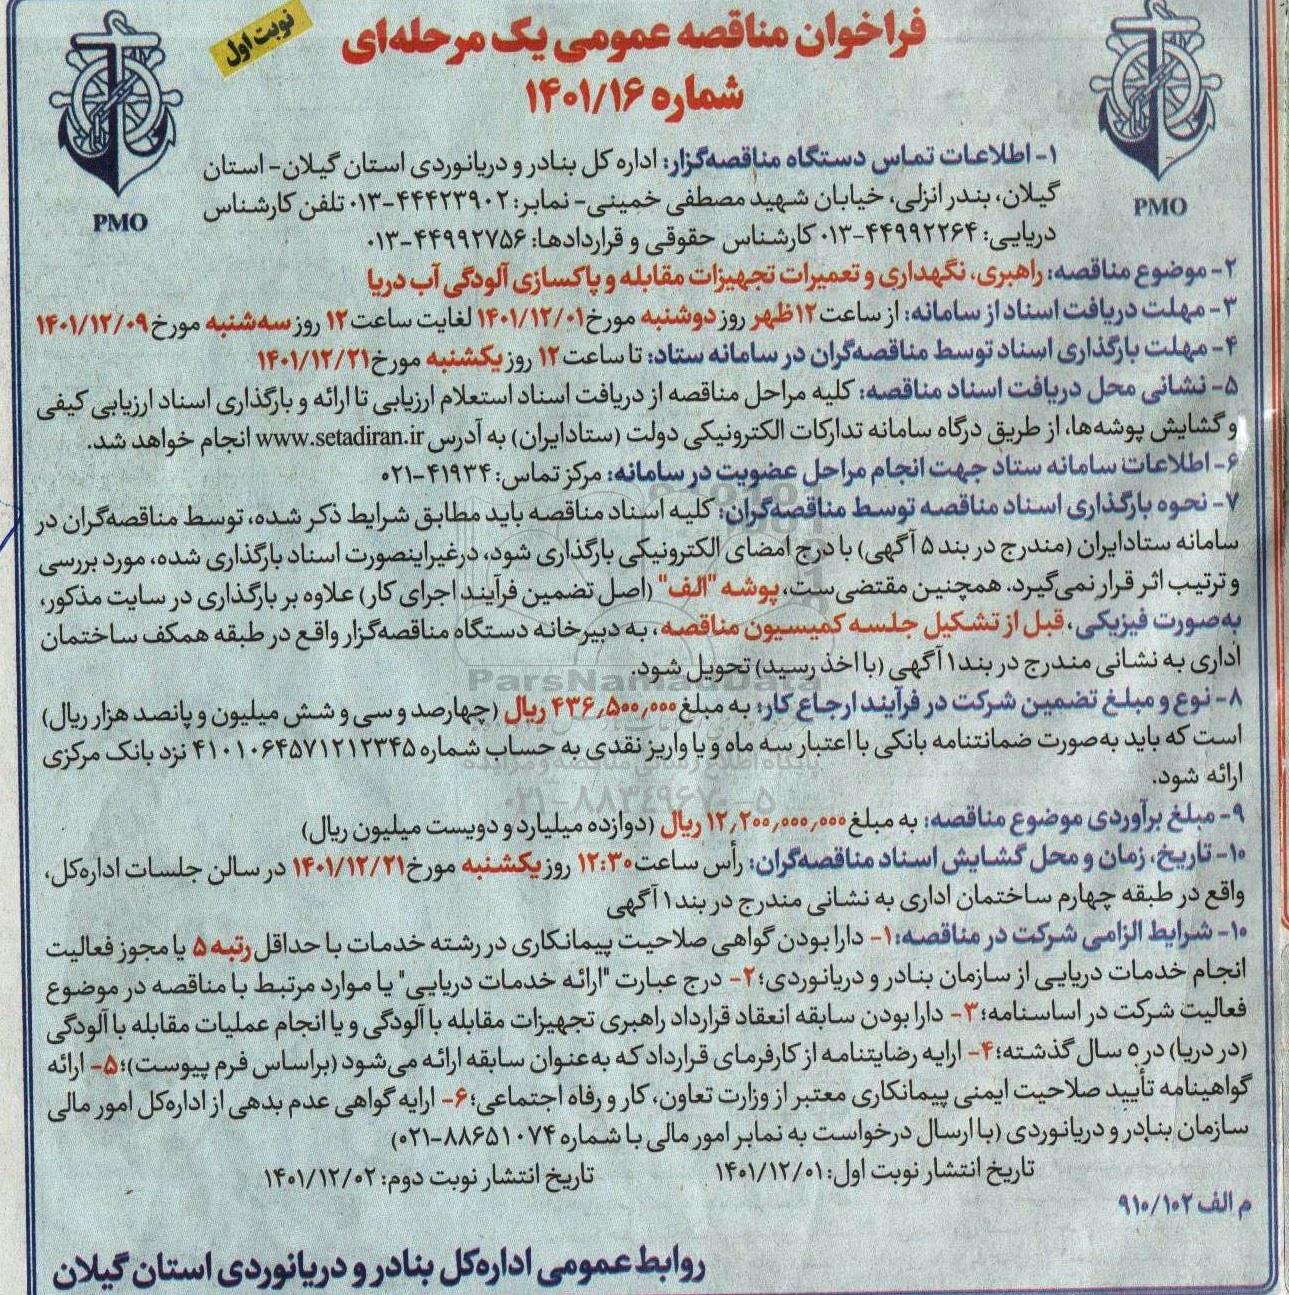 فراخوان مناقصه عمومی یک مرحله‌ای
نوبت اول
شماره ۱۴۰۱/۱۶
PMO
PMO
۱- اطلاعات تماس دستگاه مناقصه‌گزار: اداره کل بنادر و دریانوردی استان گیلان- استان
گیلان، بندر انزلی، خیابان شهید مصطفی خمینی- نمابر: ۴۴۴۲۳۹۰۲-۰۱۳ تلفن کارشناس
دریایی: ۴۴۹۹۲۲۶۴-۰۱۳ کارشناس حقوقی و قراردادها: ۴۴۹۹۲۷۵۶-۰۱۳
۲- موضوع مناقصه: راهبری، نگهداری و تعمیرات تجهیزات مقابله و پاکسازی آلودگی آب دریا
۳- مهلت دریافت اسناد از سامانه: از ساعت ۱۲ ظهر روز دوشنبه مورخ ۱۴۰۱/۱۲/۰۱ لغایت ساعت ۱۲ روز سه‌شنبه مورخ ۱۴۰۱/۱۲/۰۹
۴- مهلت بارگذاری اسناد توسط مناقصه‌گران در سامانه ستاد: تا ساعت ۱۲ روز یکشنبه مورخ ۱۴۰۱/۱۲/۲۱
۵- نشانی محل دریافت اسناد مناقصه: کلیه مراحل مناقصه از دریافت اسناد استعلام ارزیابی تا ارائه و بارگذاری اسناد ارزیابی کیفی
و گشایش پوشه‌ها، از طریق درگاه سامانه تدارکات الکترونیکی دولت (ستادایران) به آدرس www.setadiran.ir انجام خواهد شد.
۶- اطلاعات سامانه ستاد جهت انجام مراحل عضویت در سامانه: مرکز تماس: ۴۱۹۳۴-۰۲۱
۷- نحوه بارگذاری اسناد مناقصه توسط مناقصه‌گران: کلیه اسناد مناقصه باید مطابق شرایط ذکر شده، توسط مناقصه‌گران در
سامانه ستادایران (مندرج در بند ۵ آگهی) با درج امضای الکترونیکی بارگذاری شود، درغیراینصورت اسناد بارگذاری شده، مورد بررسی
و ترتیب اثر قرار نمی‌گیرد. همچنین مقتضی‌ست، پوشه "الف" (اصل تضمین فرآیند اجرای کار) علاوه بر بارگذاری در سایت مذکور،
به‌صورت فیزیکی، قبل از تشکیل جلسه کمیسیون مناقصه، به دبیرخانه دستگاه مناقصه‌گزار واقع در طبقه همکف ساختمان
اداری به نشانی مندرج در بند ۱ آگهی (با اخذ رسید) تحویل شود.
ParsNamadData
۸- نوع و مبلغ تضمین شرکت در فرآیند ارجاع کار: به مبلغ ۴۳۶,۵۰۰,۰۰۰ ریال (چهارصد و سی و شش میلیون و پانصد هزار ریال)
است که باید به‌صورت ضمانتنامه بانکی با اعتبار سه ماه و یا واریز نقدی به حساب شماره ۴۱۰۱۰۶۴۵۷۱۲۱۲۳۴۵ نزد بانک مرکزی
ارائه شود.
۰۲۱-۸۸۳۴۹۶۷۰-۵
۹- مبلغ برآوردی موضوع مناقصه: به مبلغ ۱۲,۲۰۰,۰۰۰,۰۰۰ ریال (دوازده میلیارد و دویست میلیون ریال)
۱۰- تاریخ، زمان و محل گشایش اسناد مناقصه‌گران: رأس ساعت ۱۲:۳۰ روز یکشنبه مورخ ۱۴۰۱/۱۲/۲۱ در سالن جلسات اداره‌کل،
واقع در طبقه چهارم ساختمان اداری به نشانی مندرج در بند ۱ آگهی
۱۰- شرایط الزامی شرکت در مناقصه: ۱- دارا بودن گواهی صلاحیت پیمانکاری در رشته خدمات با حداقل رتبه ۵ یا مجوز فعالیت
انجام خدمات دریایی از سازمان بنادر و دریانوردی؛ ۲- درج عبارت "ارائه خدمات دریایی" یا موارد مرتبط با مناقصه در موضوع
فعالیت شرکت در اساسنامه؛ ۳- دارا بودن سابقه انعقاد قرارداد راهبری تجهیزات مقابله با آلودگی و یا انجام عملیات مقابله با آلودگی
(در دریا) در ۵ سال گذشته؛ ۴- ارایه رضایتنامه از کارفرمای قرارداد که به‌عنوان سابقه ارائه می‌شود (براساس فرم پیوست)؛ ۵- ارائه
گواهینامه تأیید صلاحیت ایمنی پیمانکاری معتبر از وزارت تعاون، کار و رفاه اجتماعی؛ ۶- ارایه گواهی عدم بدهی از اداره‌کل امور مالی
سازمان بنادر و دریانوردی (با ارسال درخواست به نمابر امور مالی با شماره ۸۸۶۵۱۰۷۴-۰۲۱)
تاریخ انتشار نوبت اول: ۱۴۰۱/۱۲/۰۱ تاریخ انتشار نوبت دوم: ۱۴۰۱/۱۲/۰۲
م الف ۹۱۰/۱۰۲
روابط عمومی اداره‌کل بنادر و دریانوردی استان گیلان